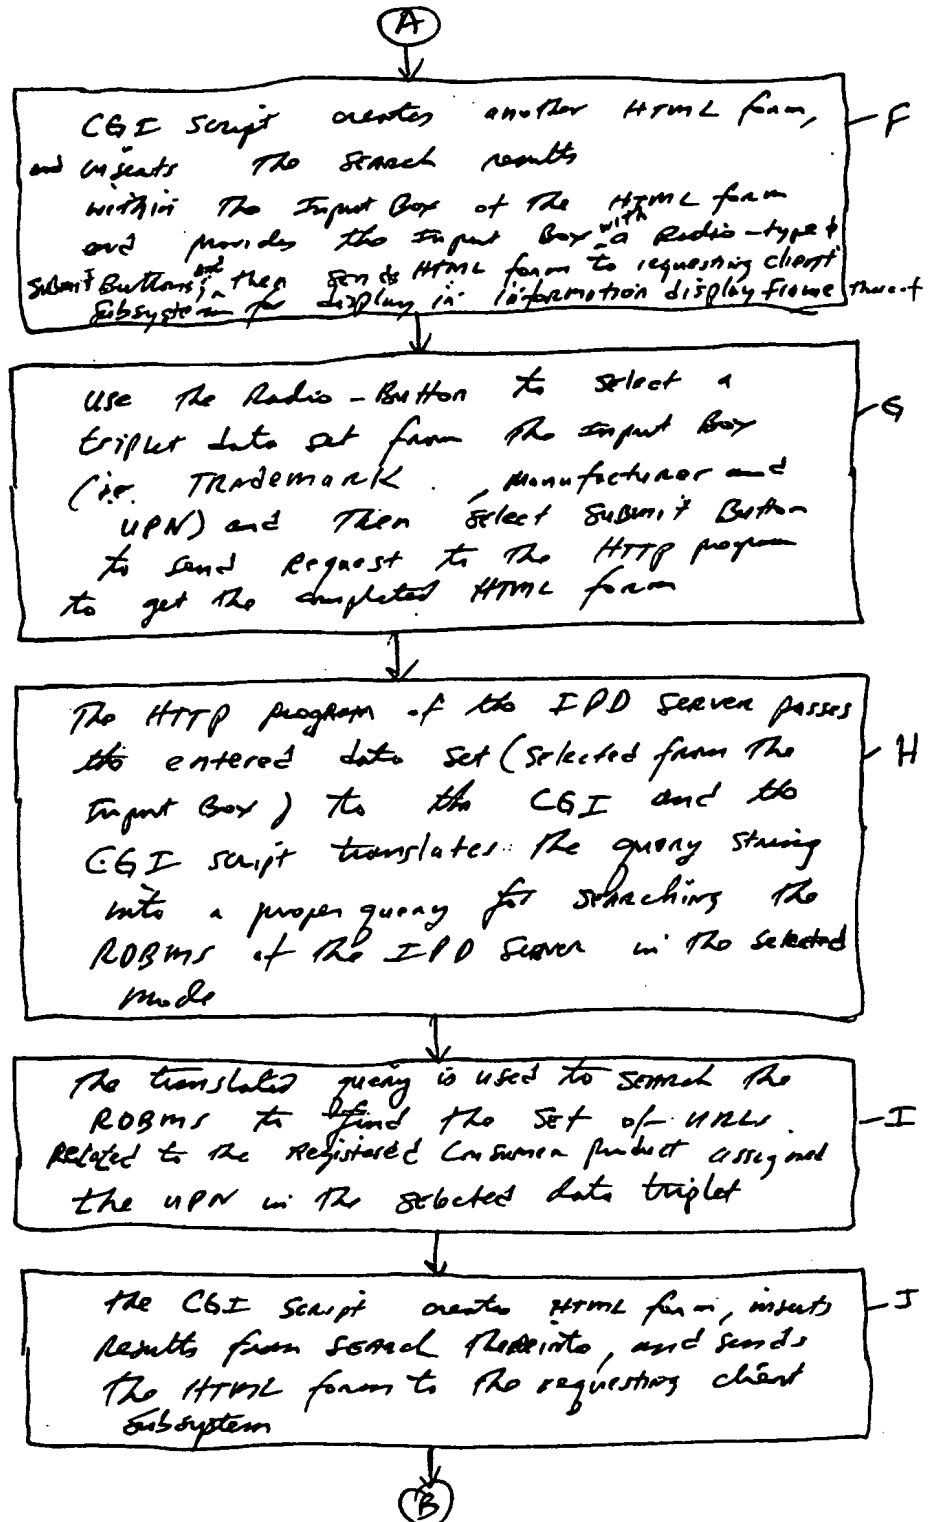 A
CGI Script creates another HTML form,
and inserts the Search results
within the Input Box of the HTML form
and provides the Input Box with a Radio-type &
Submit Buttons; and then sends HTML form to requesting client
Subsystem for display in information display frame thereof
F
Use the Radio-Button to select a
triplet data set from the Input Box
(i.e. Trademark, Manufacturer and
UPN) and then select Submit Button
to send Request to the HTTP program
to get the completed HTML form
G
The HTTP program of the IPD Server passes
the entered data set (selected from the
Input Box) to the CGI and the
CGI script translates the query string
into a proper query for searching the
RDBMS of the IPD Server in the selected
mode
H
The translated query is used to search the
RDBMS to find the set of URLs
Related to the Registered Consumer product assigned
the UPN in the selected data triplet
I
the CGI Script creates HTML form, inserts
Results from Search thereinto, and sends
the HTML form to the requesting client
Subsystem
J
B